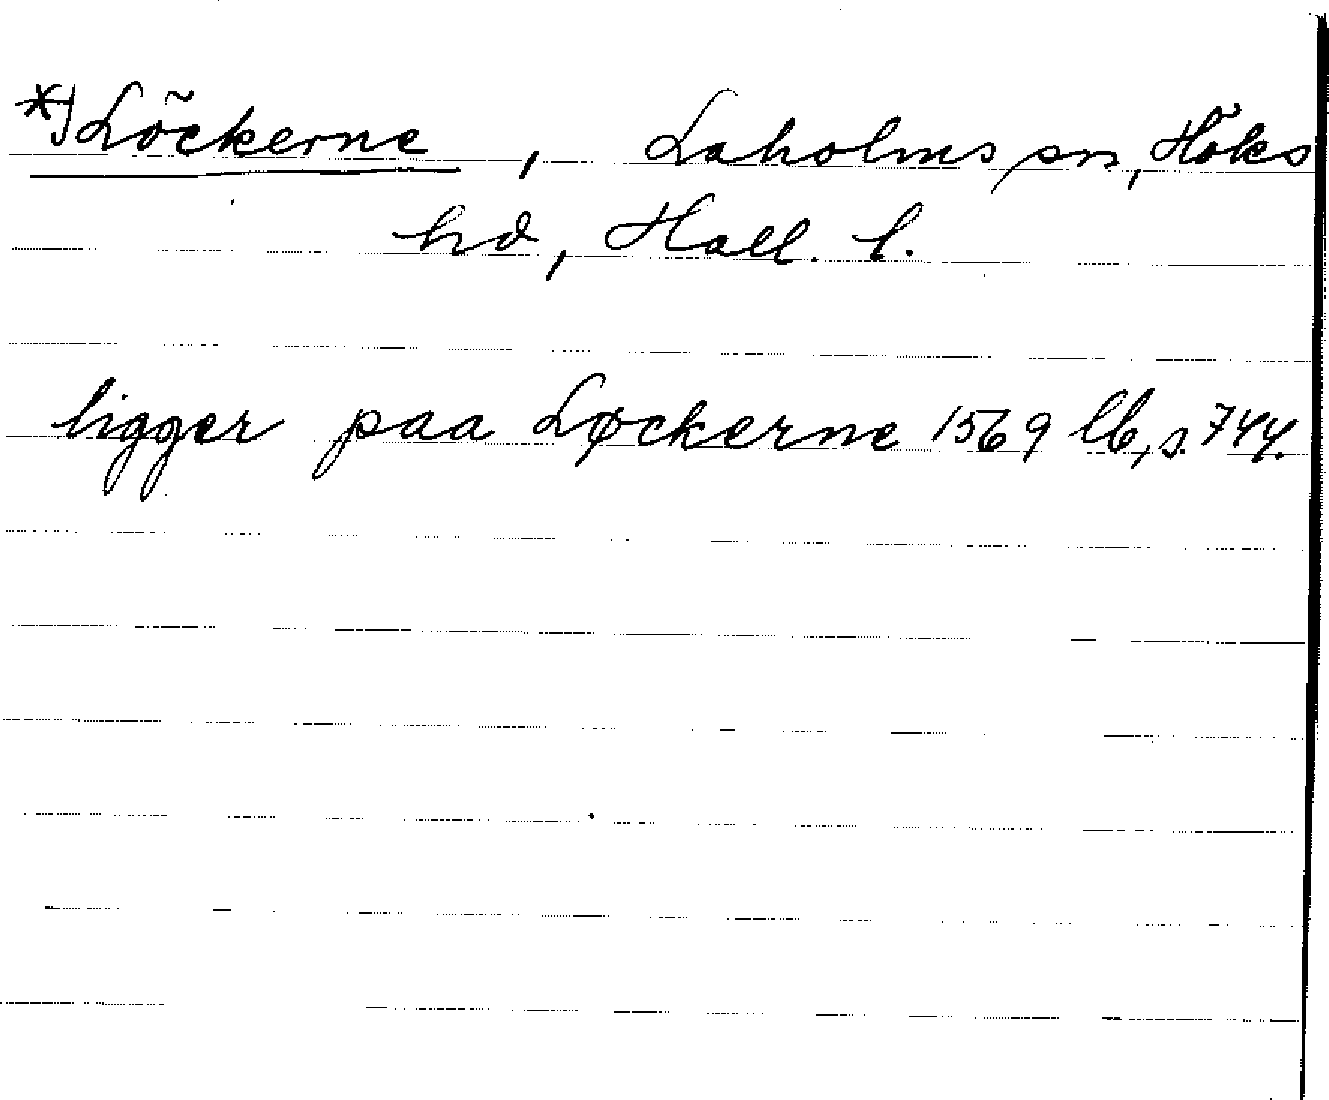 *) Löckerne, Laholms sn, Höks
hd, Hall. l.
ligger paa Løckerne 1569 lb, s. 744.